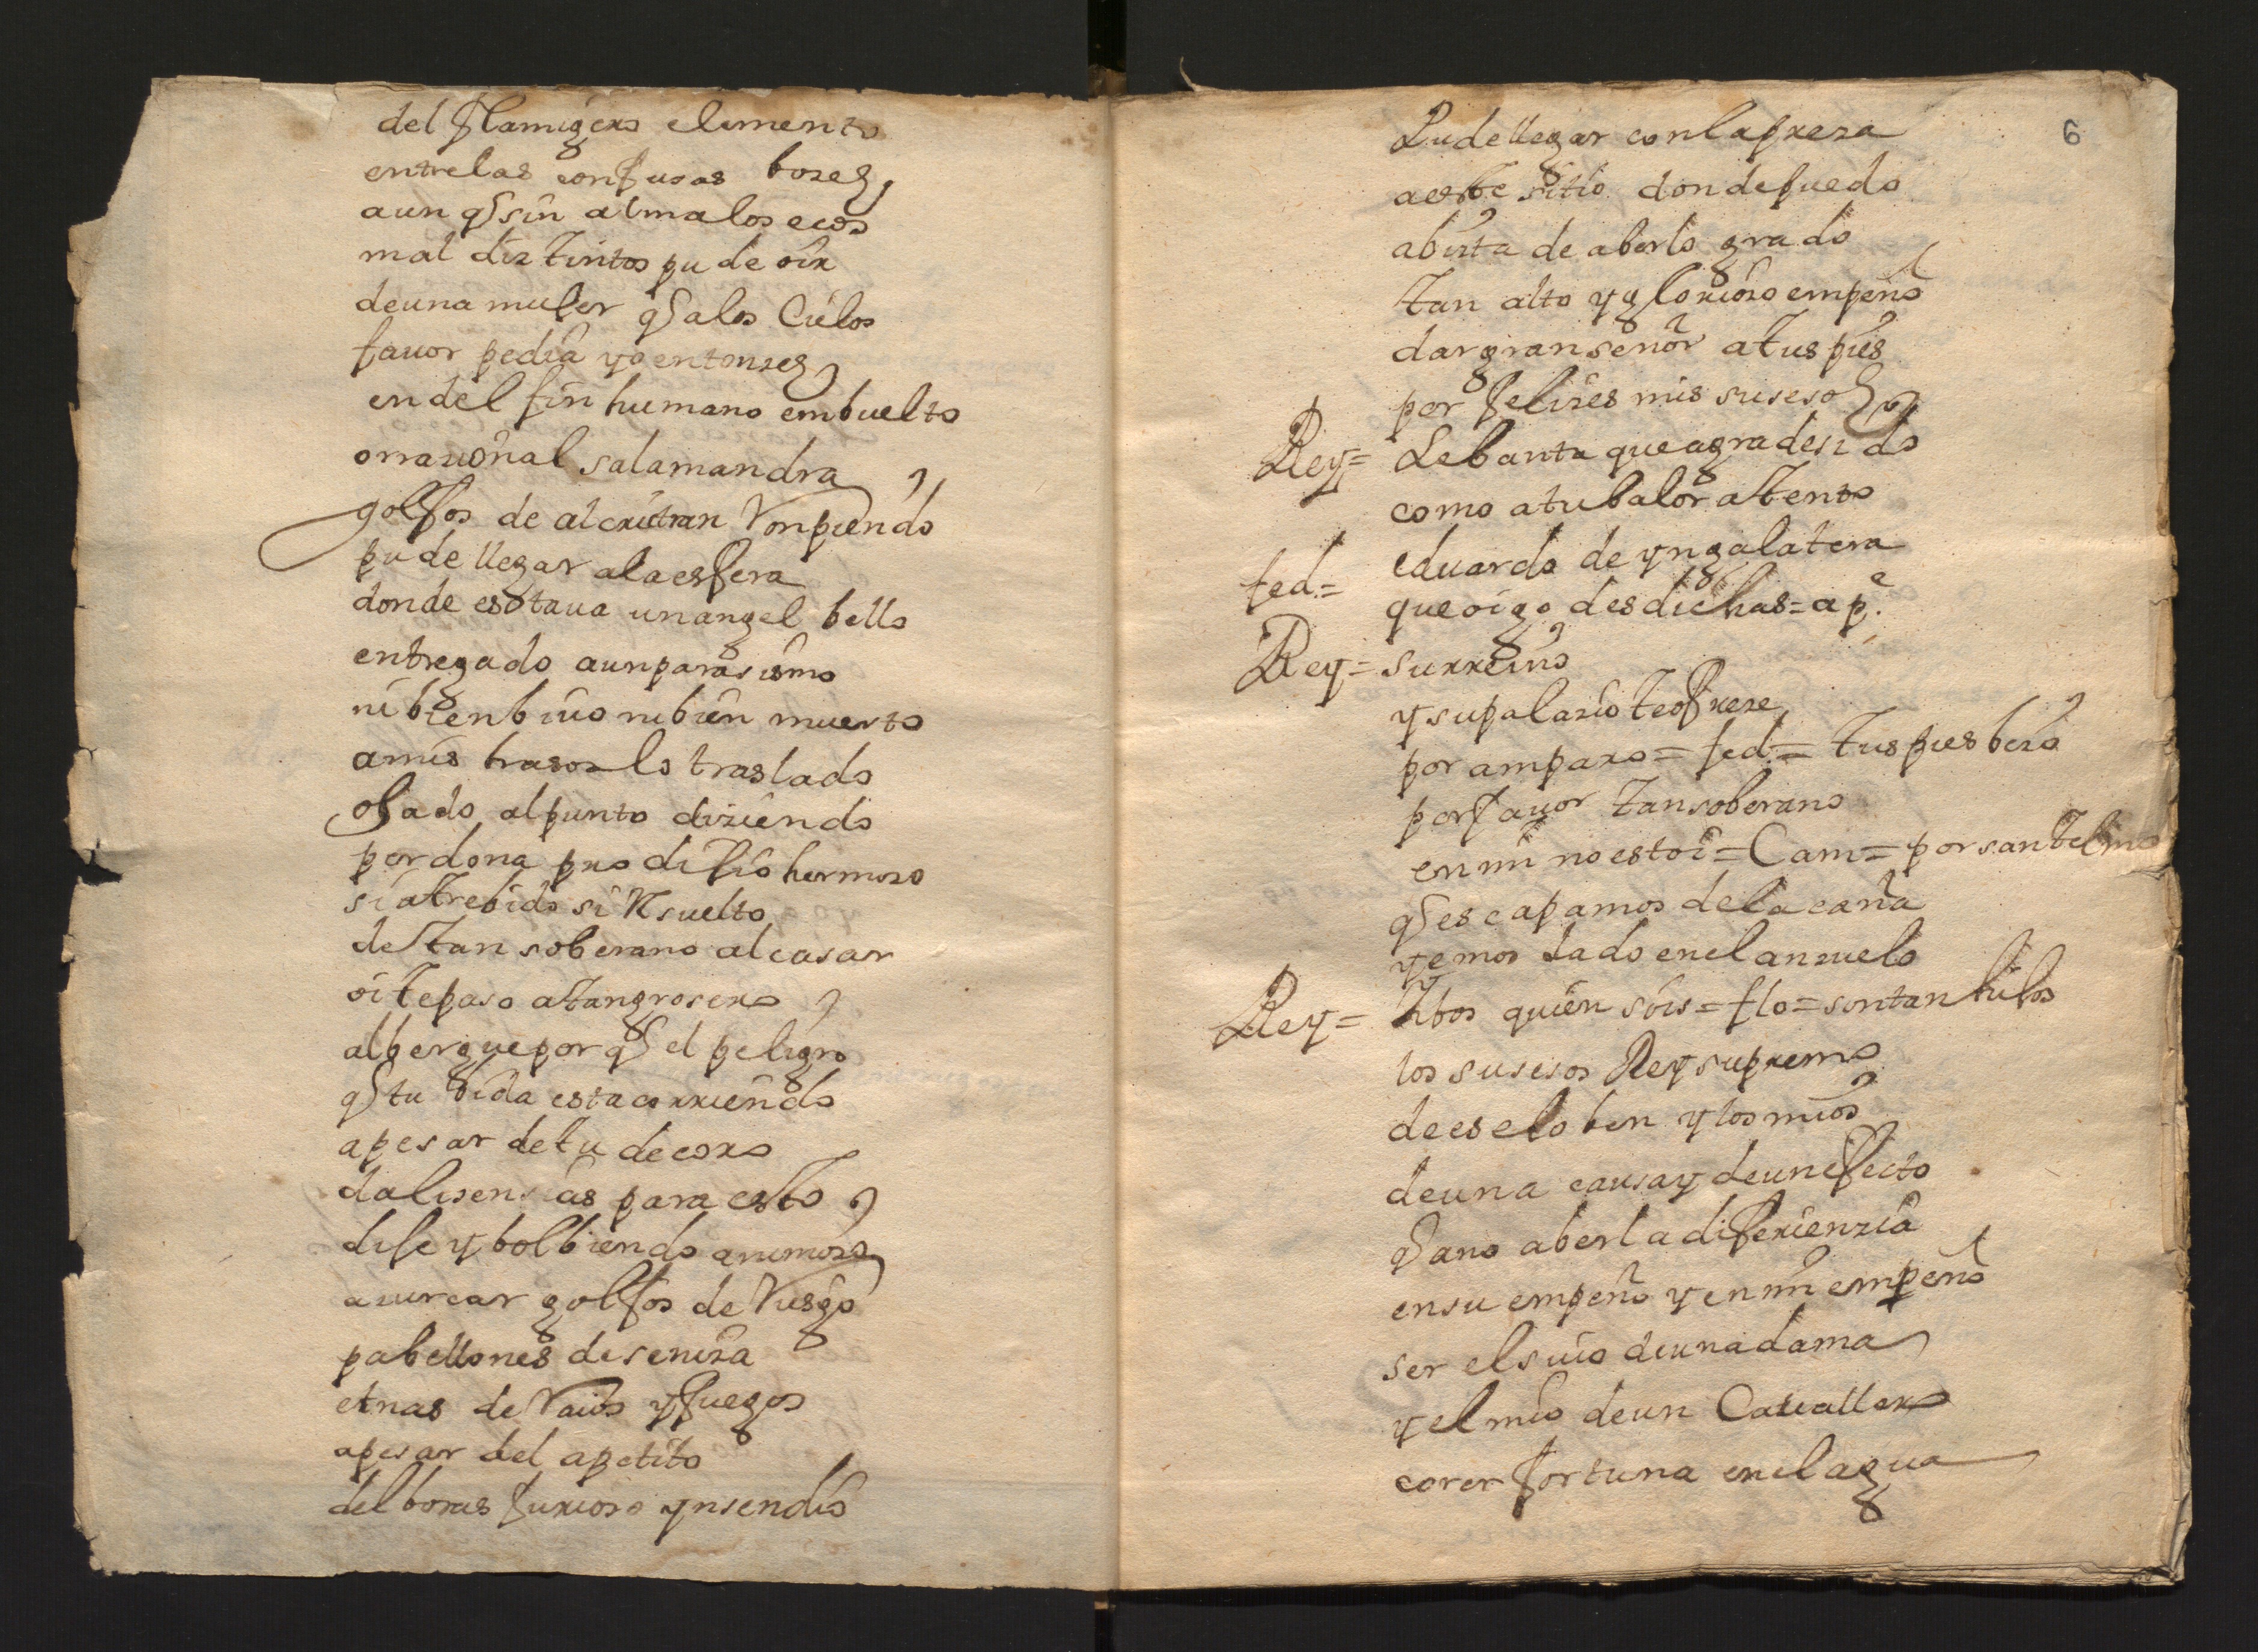 del flamigero elemento
entre las confusas bozes
aun q sin alma los ecos
mal diztintos pude oir
de una mujer q a los Cielos
favor pedia yo entonzes
en delfin humano embuelto
o rrazional salamandra
golfos de alcritran Ronpiendo
pude llegar a la esfera
donde estaua un angel bello
entregado a un parasismo
ni bien bivo ni bien muerto
a mis brasos lo traslado
osado al punto diziendo
perdona prodijio hermozo
si atrebido si Resuelto
de tan soberano alcasar
oi te paso a tan grosero
albergue por q el peligro
q tu bida esta corriendo
a pesar de tu decoro
da lisensias para esto
dije y bolbiendo animoso
a zurcar golfos de Riesgo
pabellones de seniza
etnas de Raios y fuegos
apesar del apetito
del boras furiozo ynsendio
6
Pude llegar con la preza
a este sitio donde puedo
a bista de aberlo grado
tan alto y gloriozo empeño
dar gran señor a tus pies
por felizes mis susesos
Rey= Lebanta que agradesido
como a tu balor atento
eduardo de yngalatera
fed.= que oigo desdichas = ap.e
Rey= su rreino
y su palazio te ofreze
por amparo = fed.= tus pies bezo
por favor tan soberano
en mi no estoi = Cam = por santelmo
q escapamos de la caña
y emos dado en el anzuelo
Rey= bos quien sois = flo = son tan hijos
los susesos Rey supremo
de ese joben y los mios
de una causa y de un efecto
q a no aber la diferienzia
en su empeño y en mi empeño
ser el suio de una dama
y el mio de un Cavallero
corer fortuna en el agua